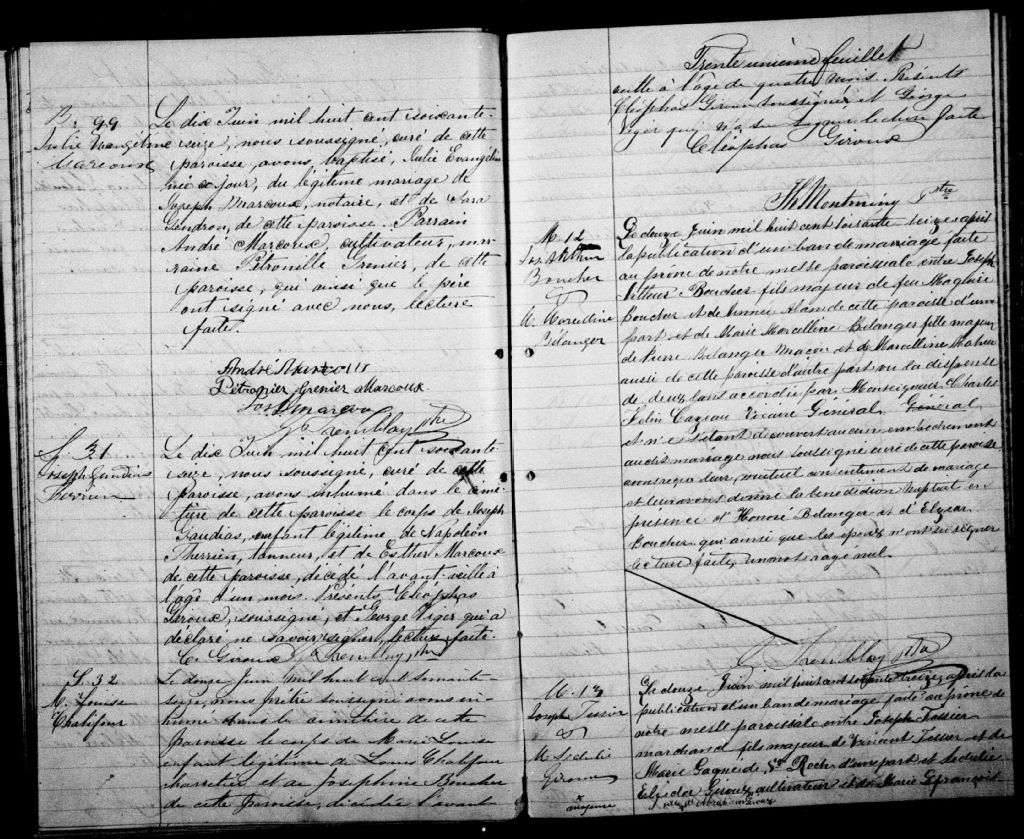 B. 99
Julie Evangéline
Marcoux
Le dix Juin mil huit cent soixante-
seize, nous soussigné, curé de cette
paroisse, avons baptisé, Julie Evangéline
née ce jour, du légitime mariage de
Joseph Marcoux, notaire, et de Sara
Gendron, de cette paroisse. Parrain
André Marcoux, cultivateur, mar-
raine Petronille Grenier, de cette
paroisse, qui ainsi que le père
ont signé avec nous, lecture
faite.
André Marcoux
Petronier Grenier Marcoux
Jos. Marcou
Tremblay Ptre
S. 31
Joseph Gaudias
Therrien
Le dix Juin mil huit cent soixante-
seize, nous soussigné, curé de cette
paroisse, avons inhumé dans le cime-
tière de cette paroisse le corps de Joseph
Gaudias, enfant légitime de Napoléon
Therrien, tanneur, et de Esther Marcoux
de cette paroisse, décédé l'avant-veille à
l'âge d'un mois. Présents Cléophas
Giroux, soussigné, et George Viger qui a
déclaré ne savoir signer, lecture faite.
C. Giroux Tremblay Ptre
S. 32
M. Louise
Chalifour
Le douze Juin mil huit cent soixante-
seize, nous prêtre soussigné avons in-
humé dans le cimetière de cette
paroisse le corps de Marie Louise
enfant légitime de Louis Chalifour
charretier et de Josephine Boucher
de cette paroisse, décédée l'avant
Trente unième feuillet
veille à l'âge de quatre mois. Présents
Cléophas Giroux soussigné et George
Viger qui n'a su signer lecture faite
Cléophas Giroux
Th Montminy Ptre
M. 12
Jos. Arthur
Boucher
&
M. Marceline
Bélanger
Le douze Juin mil huit cent soixante seize, après
la publication d'un ban de mariage faite
au prone de notre messe paroissiale entre Joseph
Arthur Boucher fils majeur de feu Magloire
Boucher et de Adam de cette paroisse d'une
part et de Marie Marcelline Bélanger fille majeure
de Pierre Bélanger Maçon et de Marcelline Maheu
aussi de cette paroisse d'autre part vu la dispense
de deux bans accordée par Monseigneur Charles
Felix Cazeau Vicaire Général Général
et n'existant découvert aucun empêchement
audit mariage nous soussigné curé de cette paroisse
avons reçu leur mutuel consentement de mariage
et leur avons donné la bénédiction nuptiale en
présence d'Honoré Bélanger et d'Elzear
Boucher qui ainsi que les époux n'ont su signer
lecture faite, un mot rayé nul
Tremblay Ptre
M. 13
Joseph Tessier
&
M. Sedulie
Giroux
Le douze Juin mil huit cent soixante seize, après la
publication d'un ban de mariage faite au prone de
notre messe paroissiale entre Joseph Tessier
marchand fils majeur de Vincent Tessier et de
Marie Gagné de St Roch d'une part et Sedulie
Giroux cultivateur et de Marie Lefrançois
x majeure